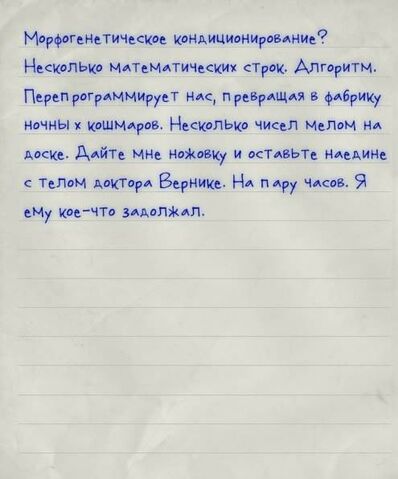 Морфогенетическое кондиционирование?
Несколько математических строк. Алгоритм.
Перепрограммирует нас, превращая в фабрику
ночных кошмаров. Несколько чисел мелом на
доске. Дайте мне ножовку и оставьте наедине
с телом доктора Вернике. На пару часов. Я
ему кое-что задолжал.